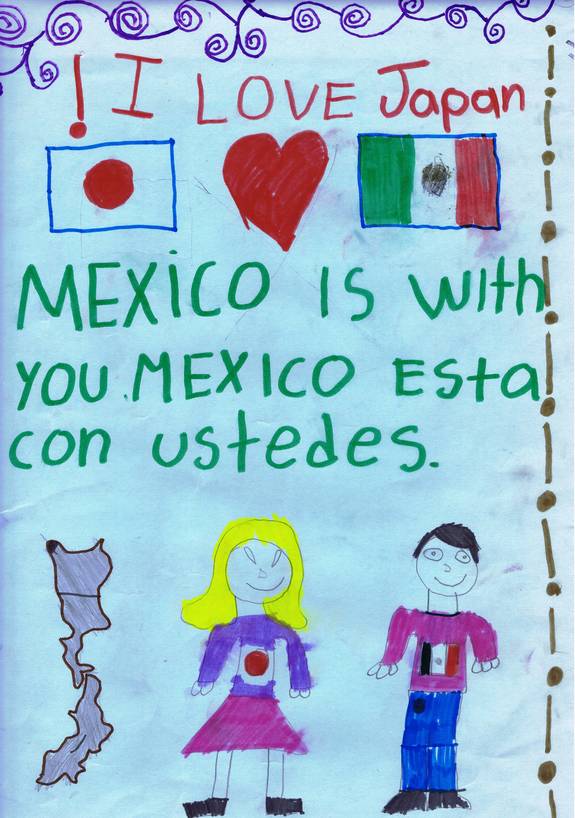 ! I LOVE Japan
MEXiCO IS With
YOU.MEXICO Esta
con ustedes.